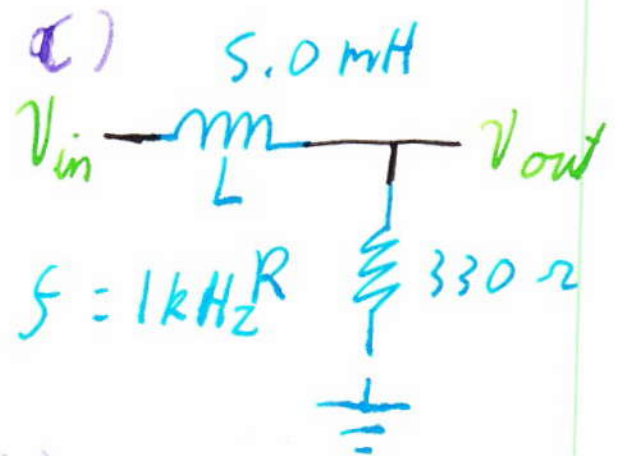 a)
5.0 mH
Vin
Vout
L
f = 1kHz
R
330 Ω